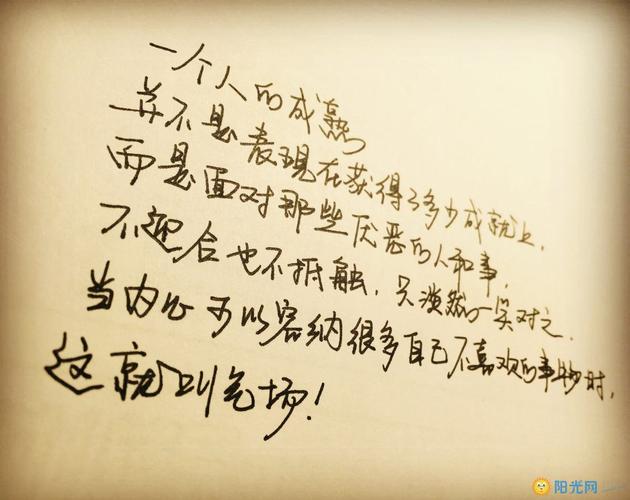 一个人的成熟
并不是表现在获得了多少成就上,
而是面对那些厌恶的人和事,
不迎合也不抵触,只淡然一笑对之.
当内心可以容纳很多自己不喜欢的事物时,
这就叫气场!
阳光网